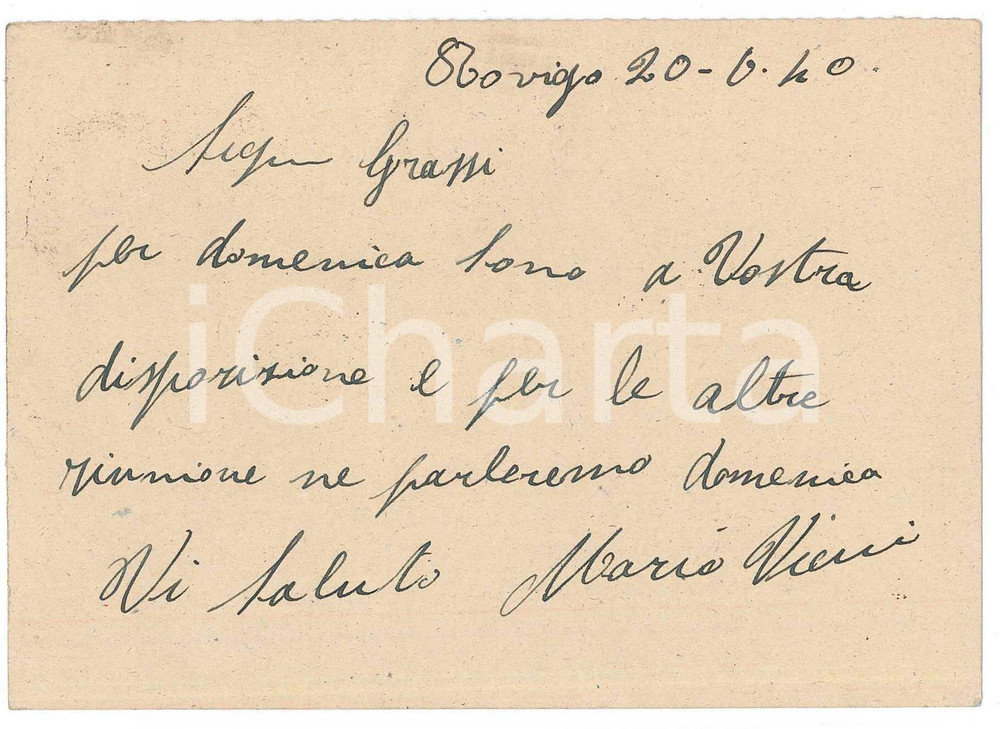 Rovigo 20-6-40.
Grassi
per domenica sono a Vostra
disposizione e per le altre
riunione ne parleremo domenica
Vi saluto Mario Vicini
iCharta